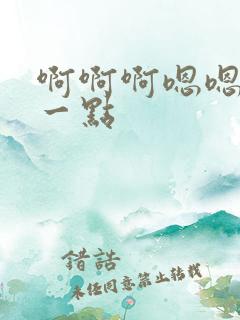 啊啊啊嗯嗯
一點
錯誥
未经同意禁止转载